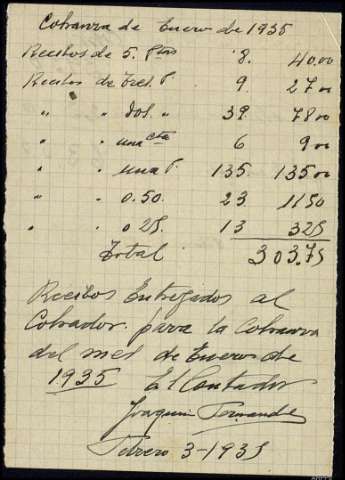 Cobranza de Enero de 1935
Recibos de 5. Ptas 8. 40.00
Recibos de Tres. P. 9. 27 00
" " dos. " 39. 78 00
" " una cta 6 9 00
" " una P. 135 135 00
" " 0.50. 23 11 50
" " 0 25. 13 3 25
Total. 303.75
Recibos Entregados al
Cobrador para la Cobranza
del mes de Enero de
1935 El Contador
Joaquin Fernandez
Febrero 3-1935